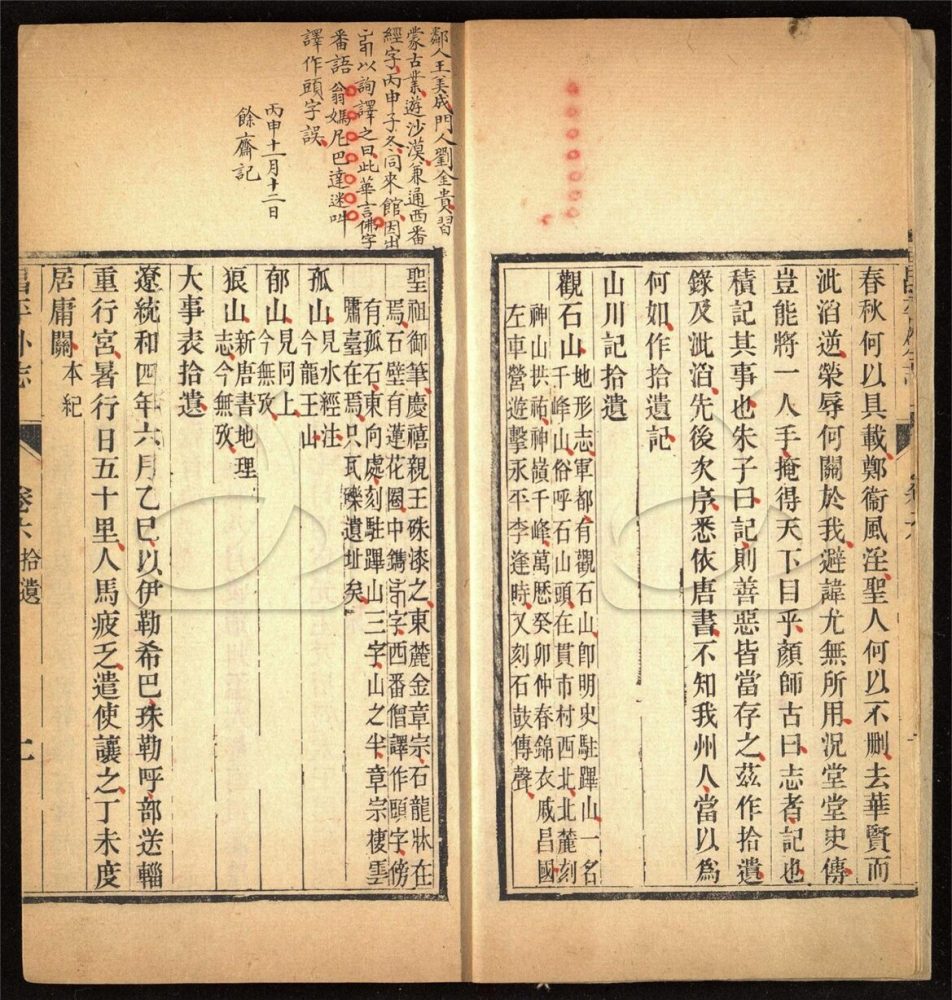 春秋何以具載鄭衞風淫聖人何以不删去華賢而
泚滔逆榮辱何關於我避諱尤無所用況堂堂史傳
豈能將一人手掩得天下目乎顏師古曰志者記也
積記其事也朱子曰記則善惡皆當存之茲作拾遺
錄及泚滔先後次序悉依唐書不知我州人當以爲
何如作拾遺記
山川記拾遺
觀石山地形志軍都有觀石山卽明史駐蹕山一名
千峰山俗呼石山頭在貫市村西北北麓刻
神山拱祐神嶺千峰萬厯癸卯仲春錦衣戚昌國
左車營遊擊永平李逢時又刻石鼓傳聲
鄰人王美成門人劉金貴習
蒙古業遊沙漠兼通西番
經字丙申子冬同來館因出
以詢譯之曰此華言佛字
番語翁嫣尼巴達迷吽
譯作頭字誤
丙申十一月十二日
餘齋記
聖祖御筆慶禧親王硃漆之東麓金章宗石龍牀在
焉石壁有蓮花圈中鐫字西番僧譯作頭字傍
有孤石東向處刻駐蹕山三字山之半章宗棲雲
嘯臺在焉只瓦礫遺址矣
孤山見水經注今龍王山
郁山見同上今無攷
狼山新唐書地理志今無攷
大事表拾遺
遼統和四年六月乙巳以伊勒希巴珠勒呼部送輜
重行宮暑行日五十里人馬疲乏遣使讓之丁未度
居庸關本紀
昌平外志
卷六拾遺